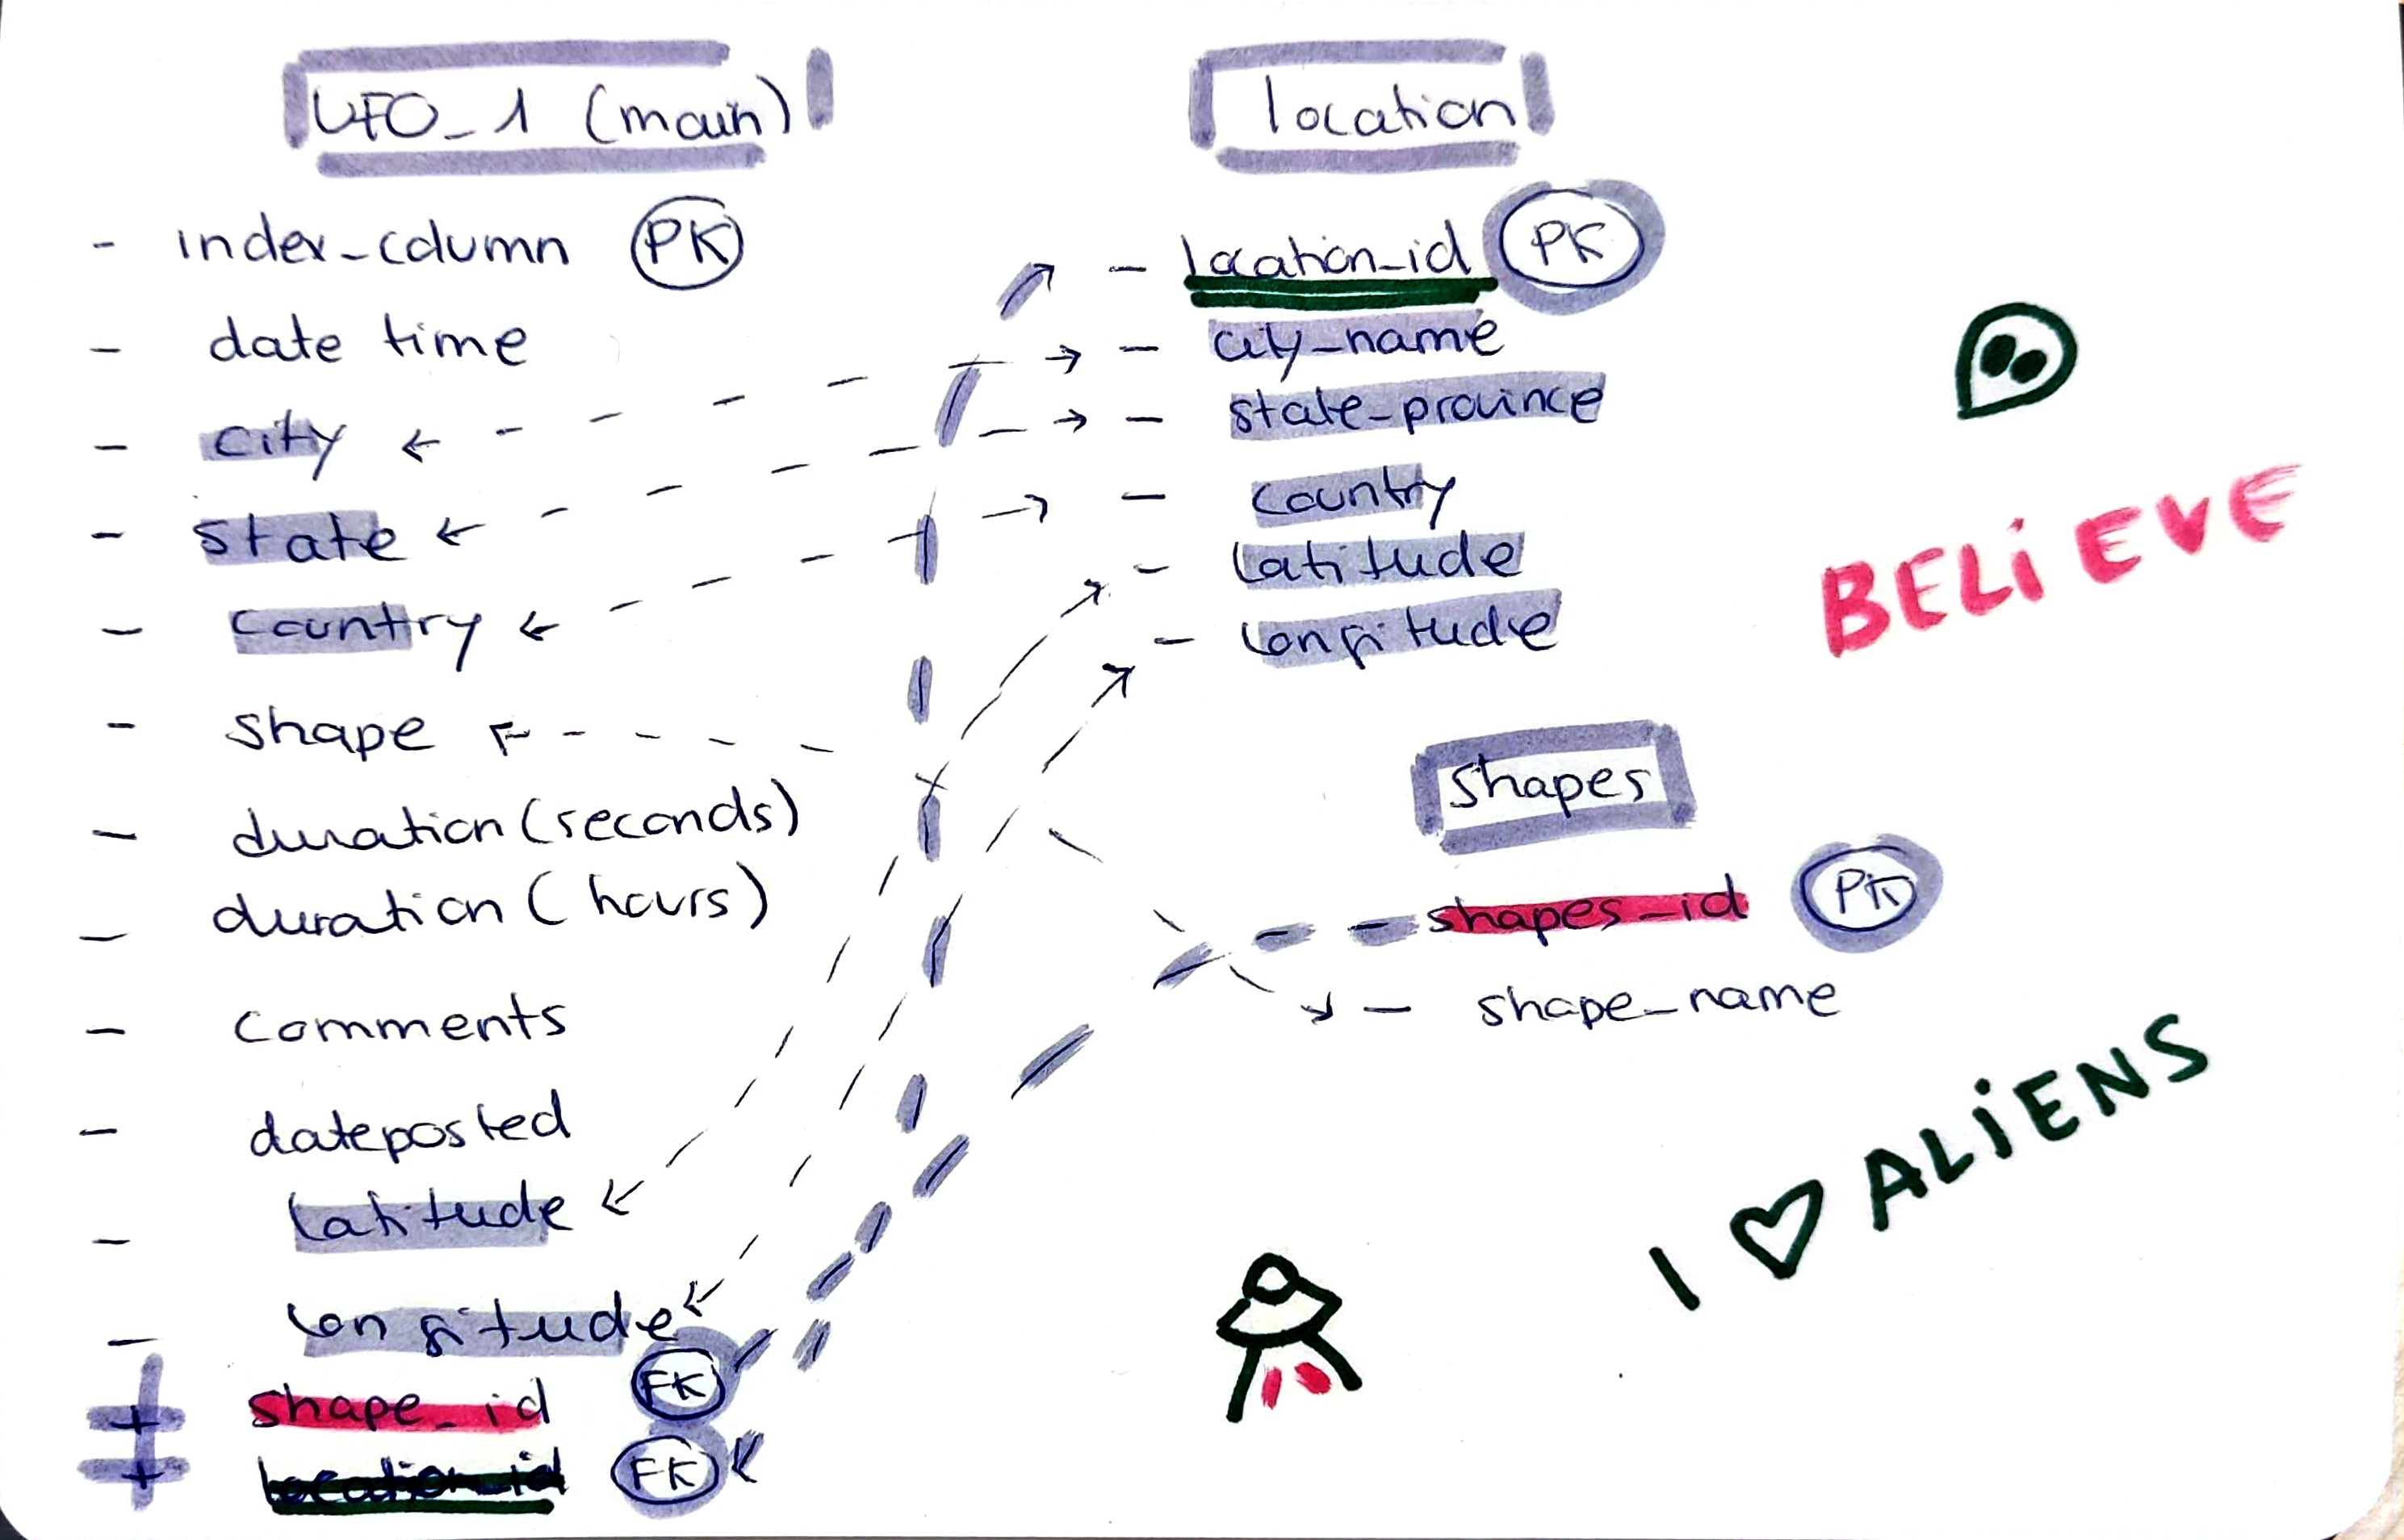 UFO_1 (main)
- index_column PK
- date time
- city
- state
- country
- shape
- duration (seconds)
- duration (hours)
- comments
- dateposted
- latitude
- longitude
+ shape_id FK
+ location_id FK
location
- location_id PK
- city_name
- state_province
- country
- latitude
- longitude
shapes
shapes_id PK
- shape_name
BELiEVE
I ♡ ALiENS